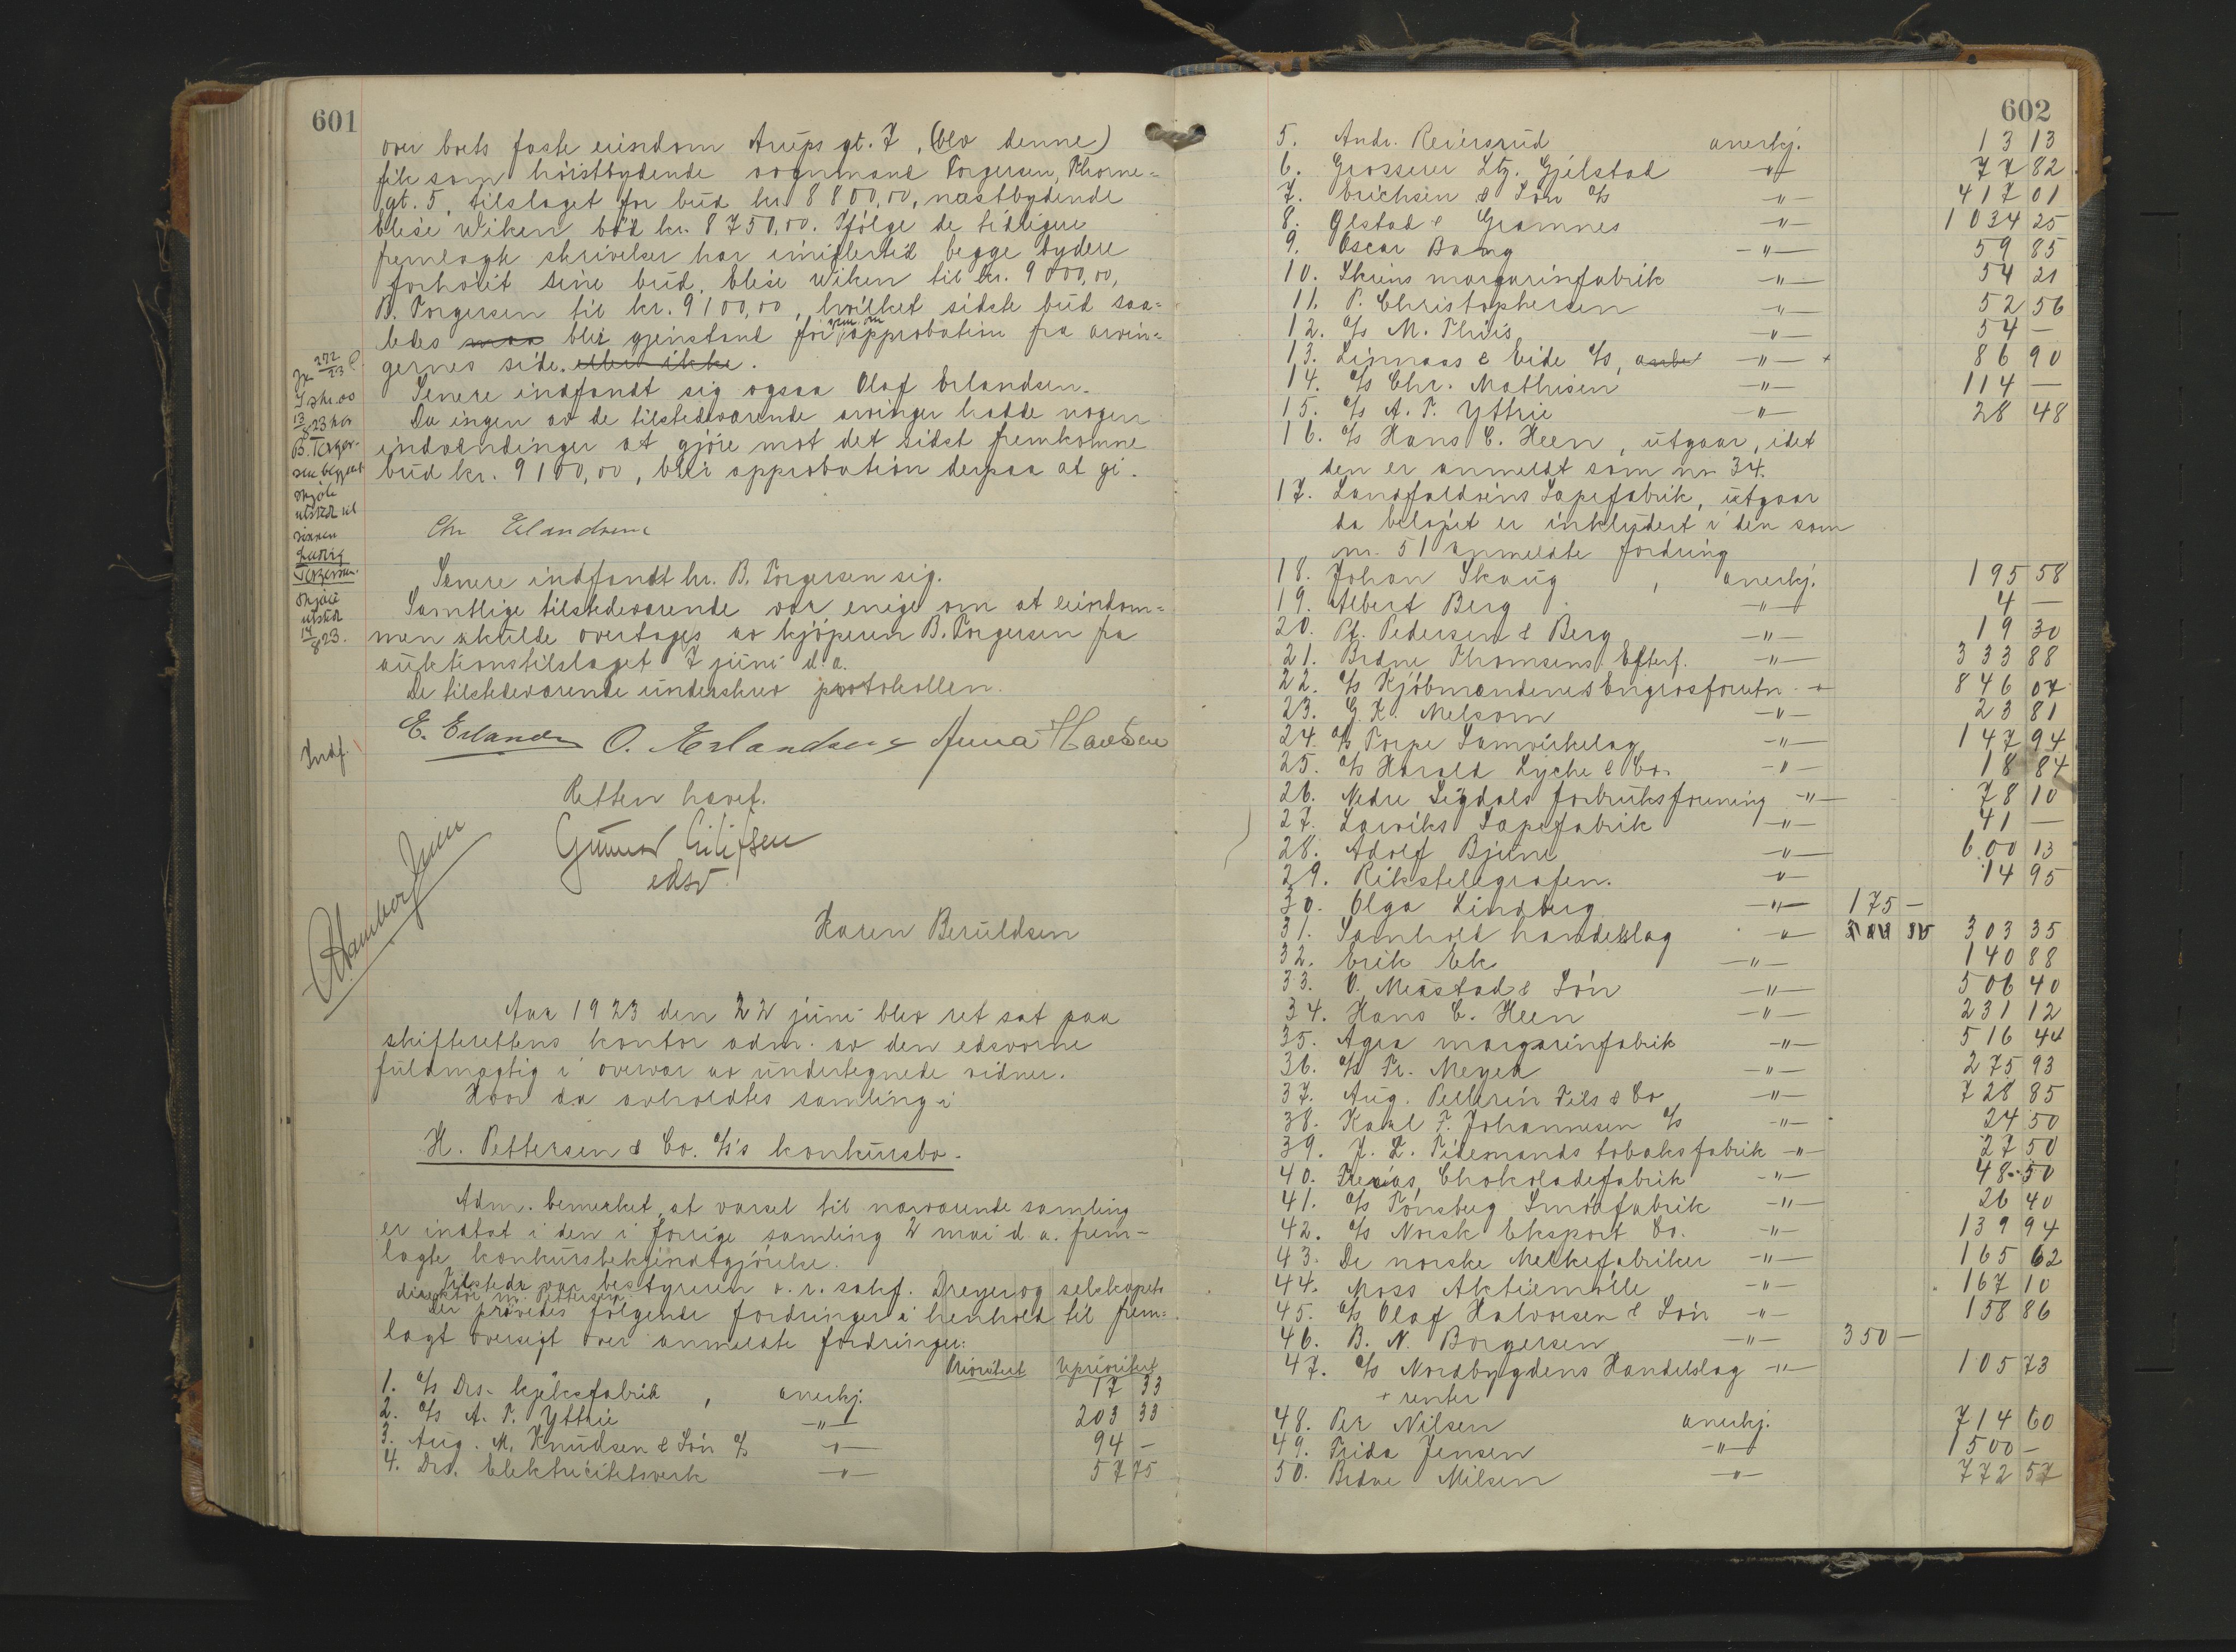 601
over boets faste eiendom Arups gt. 7, (blev denne)
fik som høistbydende vognmand Torgersen, Thorne=
gt. 5, tilslaget for bud kr. 8800,00, næstbydende
Elise Wiken bød kr. 8750,00. Ifølge de tidligere
fremlagte skrivelser har imidlertid begge bydere
forhøiet sine bud, Elise Wiken til kr. 9000,00,
B. Torgersen til kr. 9100,00, hvilket sidste bud saa=
ledes blir gjenstand for approbation fra arvin=
gernes side. eller ikke.
Senere indfandt sig ogsaa Olaf Erlandsen.
Da ingen av de tilstedeværende arvinger hadde nogen
indvendinger at gjøre mot det sidst fremkomne
bud kr. 9100,00, blir approbation derpaa at gi.
272
23
13/8 23 har
B. Torger-
sen begjært
skjøte
utstedt til
sønnen
Ludvig
Torgersen.
Skjøte
utstedt
14/8 23.
Chr Erlandsen
Senere indfandt hr. B. Torgersen sig.
Samtlige tilstedeværende var enige om at eiendom=
men skulde overtages av kjøperen B. Torgersen fra
auktionstilslaget 7 juni d.a.
De tilstedeværende underskrev protokollen.
E. Erlandsen O. Erlandsen Anna Hansen
Indf.
Retten hævet.
Gunnar Eilifsen
edsv.
Karen Beruldsen
Aar 1923 den 22 juni blev ret sat paa
skifterettens kontor adm. av den edsvorne
fuldmægtig i overvær av undertegnede vidner.
Hvor da avholdtes samling i
H. Pettersen & Co. A/S's konkursbo.
Adm. bemerket, at varsel til nærværende samling
er indtat i den i forrige samling 2 mai d.a. frem-
lagte konkursbekjendtgjørelse.
Tilstede var bestyreren o.r. sakf. Dreyer og selskapets
direktør Hr. Pettersen.
Der prøvedes følgende fordringer i henhold til frem=
lagt oversigt over anmeldte fordringer:
Prioritert Uprioritert
1. A/S Drs. kjeksfabrik, anerkj. 17 33
2. A/S A. T. Yttrie -"- 203 33
3. Aug. M. Knudsen & Søn A/S -"- 94 -
4. Drs. Elektricitetsverk -"- 57 75
602
5. Andr. Reiersrud anerkj. 13 13
6. Grosserer Ltz. Gjelstad -"- 77 82
7. Erichsen & Søn A/S -"- 417 01
8. Ølstad & Gramnes -"- 1034 25
9. Oscar Bang -"- 59 85
10. Skiens margarinfabrik -"- 54 21
11. P. Christophersen -"- 52 56
12. A/S M. Thiis -"- 54 -
13. Lijnaas & Eide A/S, -"- 86 90
14. A/S Chr. Mathisen -"- 114 -
15. A/S A. T. Yttrie -"- 28 48
16. A/S Hans C. Heen, utgaar, idet
den er anmeldt som nr. 34.
17. Landfaldøens Sæpefabrik, utgaar
da beløpet er inkludert i den som
nr. 51 anmeldte fordring
18. Johan Skaug, anerkj. 195 58
19. Albert Berg -"- 4 -
20. Pedersen & Berg -"- 19 30
21. Brdne Thomsens Efterf. -"- 333 88
22. A/S Kjøbmændenes Engrosforretn. -"- 846 07
23. G. K. Melsom -"- 23 81
24. A/S Torpe Samvirkelag -"- 147 94
25. A/S Harald Lyche & Co. -"- 18 84
26. Nedre Sigdals forbruksforening -"- 78 10
27. Larviks Sæpefabrik -"- 41 -
28. Adolf Bjerne -"- 600 13
29. Rikstelegrafen. -"- 14 95
30. Olga Lindberg -"- 175 -
31. Samhold handelslag -"- 303 35
32. Erik Ek -"- 140 88
33. O. Mustad & Søn -"- 506 40
34. Hans C. Heen -"- 231 12
35. Agra margarinfabrik -"- 516 44
36. A/S Fr. Meyer -"- 275 93
37. Aug. Pellerin Fils & Co -"- 728 85
38. Karl F. Johannesen A/S -"- 24 50
39. J. L. Tidemands tobaksfabrik -"- 27 50
40. Freias Chokoladefabrik -"- 48 50
41. A/S Tønsberg Smørfabrik -"- 26 40
42. A/S Norsk Eksport Co. -"- 139 94
43. De norske Melkefabriker -"- 165 62
44. Moss Aktiemølle -"- 167 10
45. A/S Olaf Halvorsen & Søn -"- 158 86
46. B. N. Borgersen -"- 350 -
47. A/S Nordbygdens Handelslag -"- 105 73
+ renter
48. Per Nilsen anerkj. 714 60
49. Frida Jensen -"- 1500 -
50. Brdne Nilsen -"- 772 57